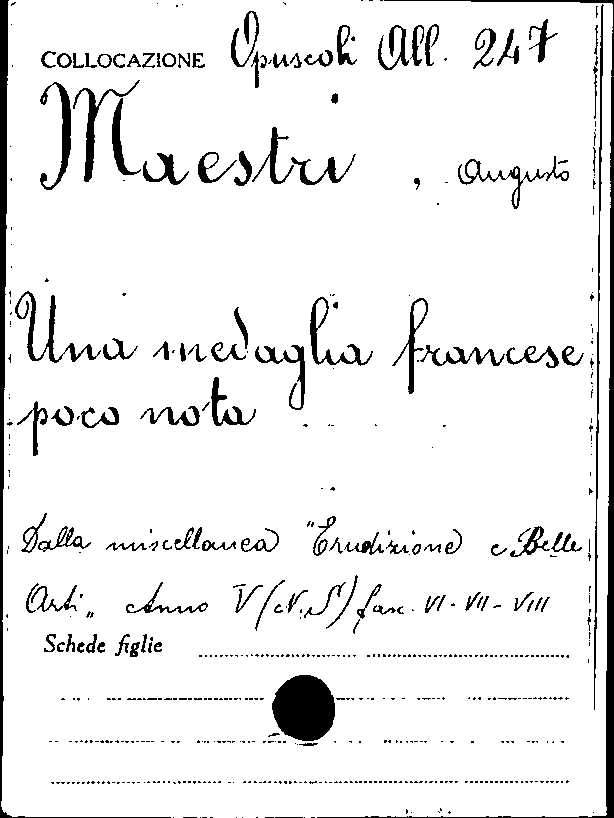 COLLOCAZIONE Opuscoli All. 247
Maestri, Augusto
Una medaglia francese
poco nota
Dalla miscellanea "Erudizione e Belle
Arti„ Anno V (N.S) fasc. VI - VII - VIII
Schede figlie